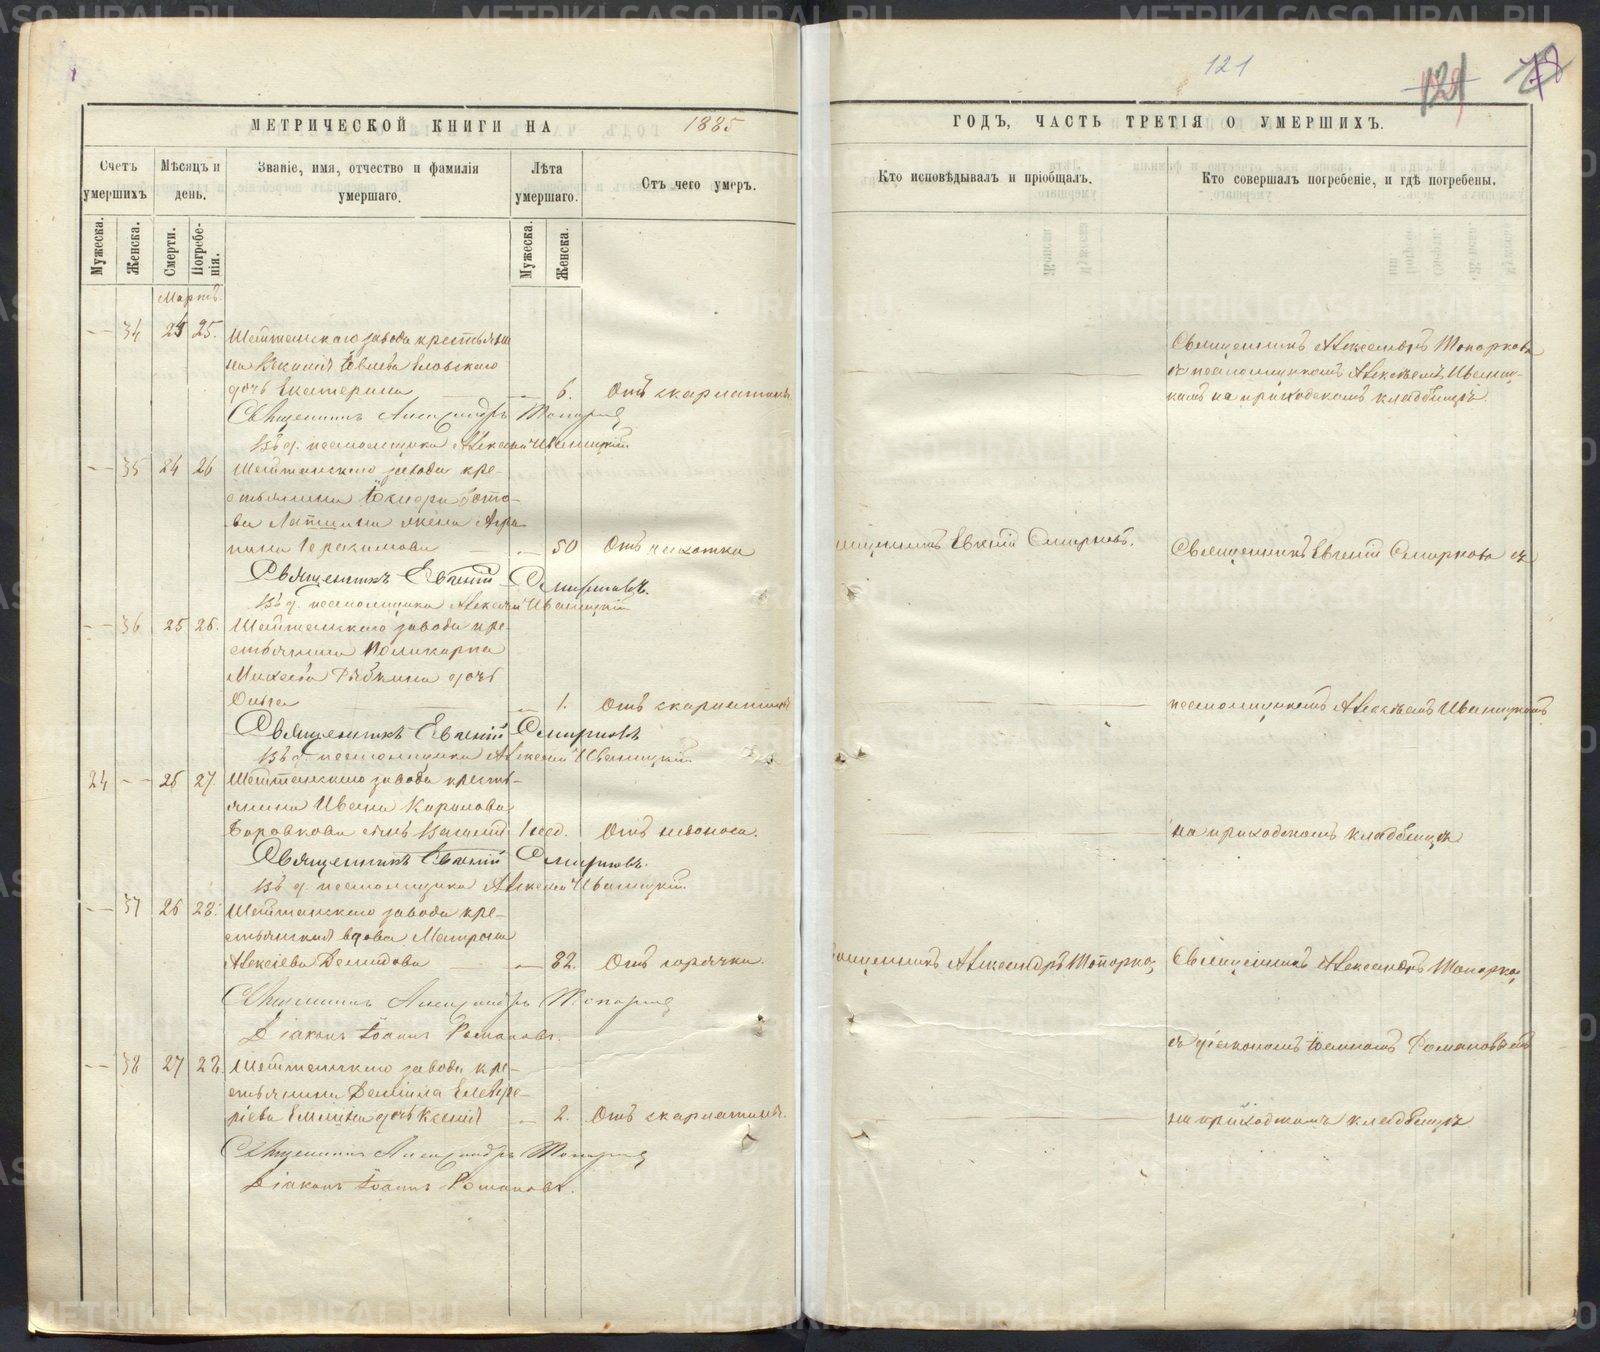 121
121
78
МЕТРИЧЕСКОЙ КНИГИ НА 1885
ГОДЪ, ЧАСТЬ ТРЕТІЯ О УМЕРШИХЪ.
Счетъ умершихъ
Мѣсяцъ и день.
Званіе, имя, отчество и фамилія умершаго.
Лѣта умершаго.
Отъ чего умеръ.
Кто исповѣдывалъ и пріобщалъ.
Кто совершалъ погребеніе, и гдѣ погребены.
Мужеска.
Женска.
Смерти.
Погребенія.
Мужеска.
Женска.
Мартъ.
34 25.
Шайтанскаго завода крестьяни
на
дочь Екатерина 6. Отъ скарлатины.
Священникъ Александръ Топорковъ
В. д. псаломщика Алексѣй Иваницкій
Священникъ Александръ Топорковъ
съ псаломщикомъ Алексѣемъ Иваниц-
кимъ на приходскомъ кладбищѣ
35 24 26 Шайтанскаго завода кре-
стьянина
Лапшина жена Агри
пина Геракимова 50 Отъ чахотки
Священникъ Евгеній Смирновъ.
Священникъ Евгеній Смирновъ съ
Священникъ Евгеній Смирновъ.
В. д. псаломщика Алексѣй Иваницкій
36 25 26. Шайтанскаго завода кре-
стьянина Поликарпа
дочь
Ольга 1. Отъ скарлатины
псаломщикомъ Алексѣемъ Иваницкимъ
Священникъ Евгеній Смирновъ
В. д. псаломщика Алексѣй Иваницкій
24 25 27. Шайтанскаго завода кресть-
янина Ивана
Боровкова сынъ Василій 1 нед. Отъ поноса.
на приходскомъ кладбищѣ
Священникъ Евгеній Смирновъ.
В. д. псаломщика Алексѣй Иваницкій
37 26 28. Шайтанскаго завода кре-
стьянская вдова Матрона
Алексіева Демидова 82. Отъ горячки.
Священникъ Александръ Топорковъ
Священникъ Александръ Топорковъ
Священникъ Александръ Топорковъ
Діаконъ Іоаннъ Романовъ.
съ діакономъ Іоанномъ Романовымъ
38 27 28. Шайтанскаго завода кре-
стьянина Даніила Елевѳе-
ріева дочь Ксенія 2. Отъ скарлатины.
на приходскомъ кладбищѣ
Священникъ Александръ Топорковъ
Діаконъ Іоаннъ Романовъ.
METRIKI.GASO-URAL.RU